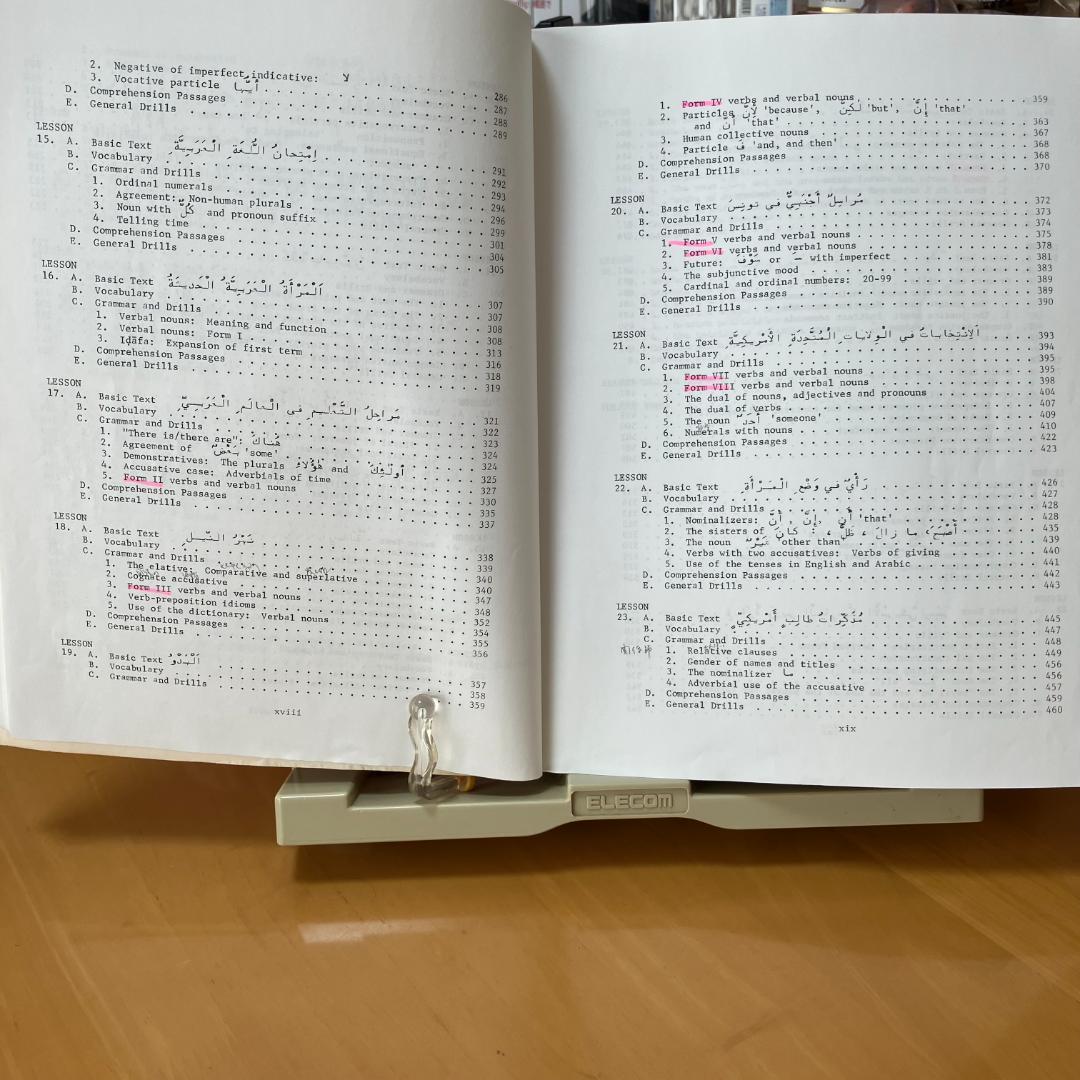 2. Negative of imperfect indicative: لا . . . 286
3. Vocative particle أَيُّها . . . 287
D. Comprehension Passages . . . 288
E. General Drills . . . 289
LESSON
15. A. Basic Text اِمْتِحانُ اللُّغَةِ الْعَرَبِيَّةِ . . . 291
B. Vocabulary . . . 292
C. Grammar and Drills . . . 293
1. Ordinal numerals . . . 294
2. Agreement: Non-human plurals . . . 296
3. Noun with كُلّ and pronoun suffix . . . 299
4. Telling time . . . 301
D. Comprehension Passages . . . 304
E. General Drills . . . 305
LESSON
16. A. Basic Text اَلْمَرْأَةُ الْعَرَبِيَّةُ الْحَديثَةُ . . . 307
B. Vocabulary . . . 307
C. Grammar and Drills . . . 308
1. Verbal nouns: Meaning and function . . . 308
2. Verbal nouns: Form I . . . 313
3. Iḍāfa: Expansion of first term . . . 316
D. Comprehension Passages . . . 318
E. General Drills . . . 319
LESSON
17. A. Basic Text مَراحِلُ التَّعْليمِ في الْعالَمِ الْعَرَبِيِّ . . . 321
B. Vocabulary . . . 322
C. Grammar and Drills . . . 323
1. "There is/there are": هُناكَ . . . 324
2. Agreement of بَعْضٌ 'some' . . . 324
3. Demonstratives: The plurals هٰؤُلاءِ and أُولٰئِكَ . . . 325
4. Accusative case: Adverbials of time . . . 327
5. Form II verbs and verbal nouns . . . 330
D. Comprehension Passages . . . 335
E. General Drills . . . 337
LESSON
18. A. Basic Text نَهْرُ النّيلِ . . . 338
B. Vocabulary . . . 339
C. Grammar and Drills . . . 340
1. The elative: Comparative and superlative . . . 340
2. Cognate accusative . . . 347
3. Form III verbs and verbal nouns . . . 348
4. Verb-preposition idioms . . . 352
5. Use of the dictionary: Verbal nouns . . . 354
D. Comprehension Passages . . . 355
E. General Drills . . . 356
LESSON
19. A. Basic Text اَلْبَدْوُ . . . 357
B. Vocabulary . . . 358
C. Grammar and Drills . . . 359
xviii
1. Form IV verbs and verbal nouns . . . 359
2. Particles لِأَنَّ 'because', لٰكِنَّ 'but', إِنَّ 'that'
and أَنَّ 'that' . . . 363
3. Human collective nouns . . . 367
4. Particle فَ 'and, and then' . . . 368
D. Comprehension Passages . . . 368
E. General Drills . . . 370
LESSON
20. A. Basic Text مُراسِلٌ أَجْنَبِيٌّ في تونِسَ . . . 372
B. Vocabulary . . . 373
C. Grammar and Drills . . . 374
1. Form V verbs and verbal nouns . . . 375
2. Form VI verbs and verbal nouns . . . 378
3. Future: سَوْفَ or سَـ with imperfect . . . 381
4. The subjunctive mood . . . 383
5. Cardinal and ordinal numbers: 20-99 . . . 389
D. Comprehension Passages . . . 389
E. General Drills . . . 390
LESSON
21. A. Basic Text اَلاِنْتِخاباتُ في الْوِلاياتِ الْمُتَّحِدَةِ الأَمْريكِيَّةِ . . . 393
B. Vocabulary . . . 394
C. Grammar and Drills . . . 395
1. Form VII verbs and verbal nouns . . . 395
2. Form VIII verbs and verbal nouns . . . 398
3. The dual of nouns, adjectives and pronouns . . . 404
4. The dual of verbs . . . 407
5. The noun أَحَدٌ 'someone' . . . 409
6. Numerals with nouns . . . 410
D. Comprehension Passages . . . 422
E. General Drills . . . 423
LESSON
22. A. Basic Text رَأْيٌ في وَضْعِ الْمَرْأَةِ . . . 426
B. Vocabulary . . . 427
C. Grammar and Drills . . . 428
1. Nominalizers: أَنْ , إِنَّ, أَنَّ 'that' . . . 428
2. The sisters of كانَ : أَصْبَحَ، ما زالَ ، ظَلَّ ، . . . 435
3. The noun غَيْرُ 'other than' . . . 439
4. Verbs with two accusatives: Verbs of giving . . . 440
5. Use of the tenses in English and Arabic . . . 441
D. Comprehension Passages . . . 442
E. General Drills . . . 443
LESSON
23. A. Basic Text مُذَكِّراتُ طالِبٍ أَمْريكِيٍّ . . . 445
B. Vocabulary . . . 447
C. Grammar and Drills . . . 448
1. Relative clauses . . . 449
2. Gender of names and titles . . . 456
3. The nominalizer ما . . . 456
4. Adverbial use of the accusative . . . 457
D. Comprehension Passages . . . 459
E. General Drills . . . 460
xix
ELECOM